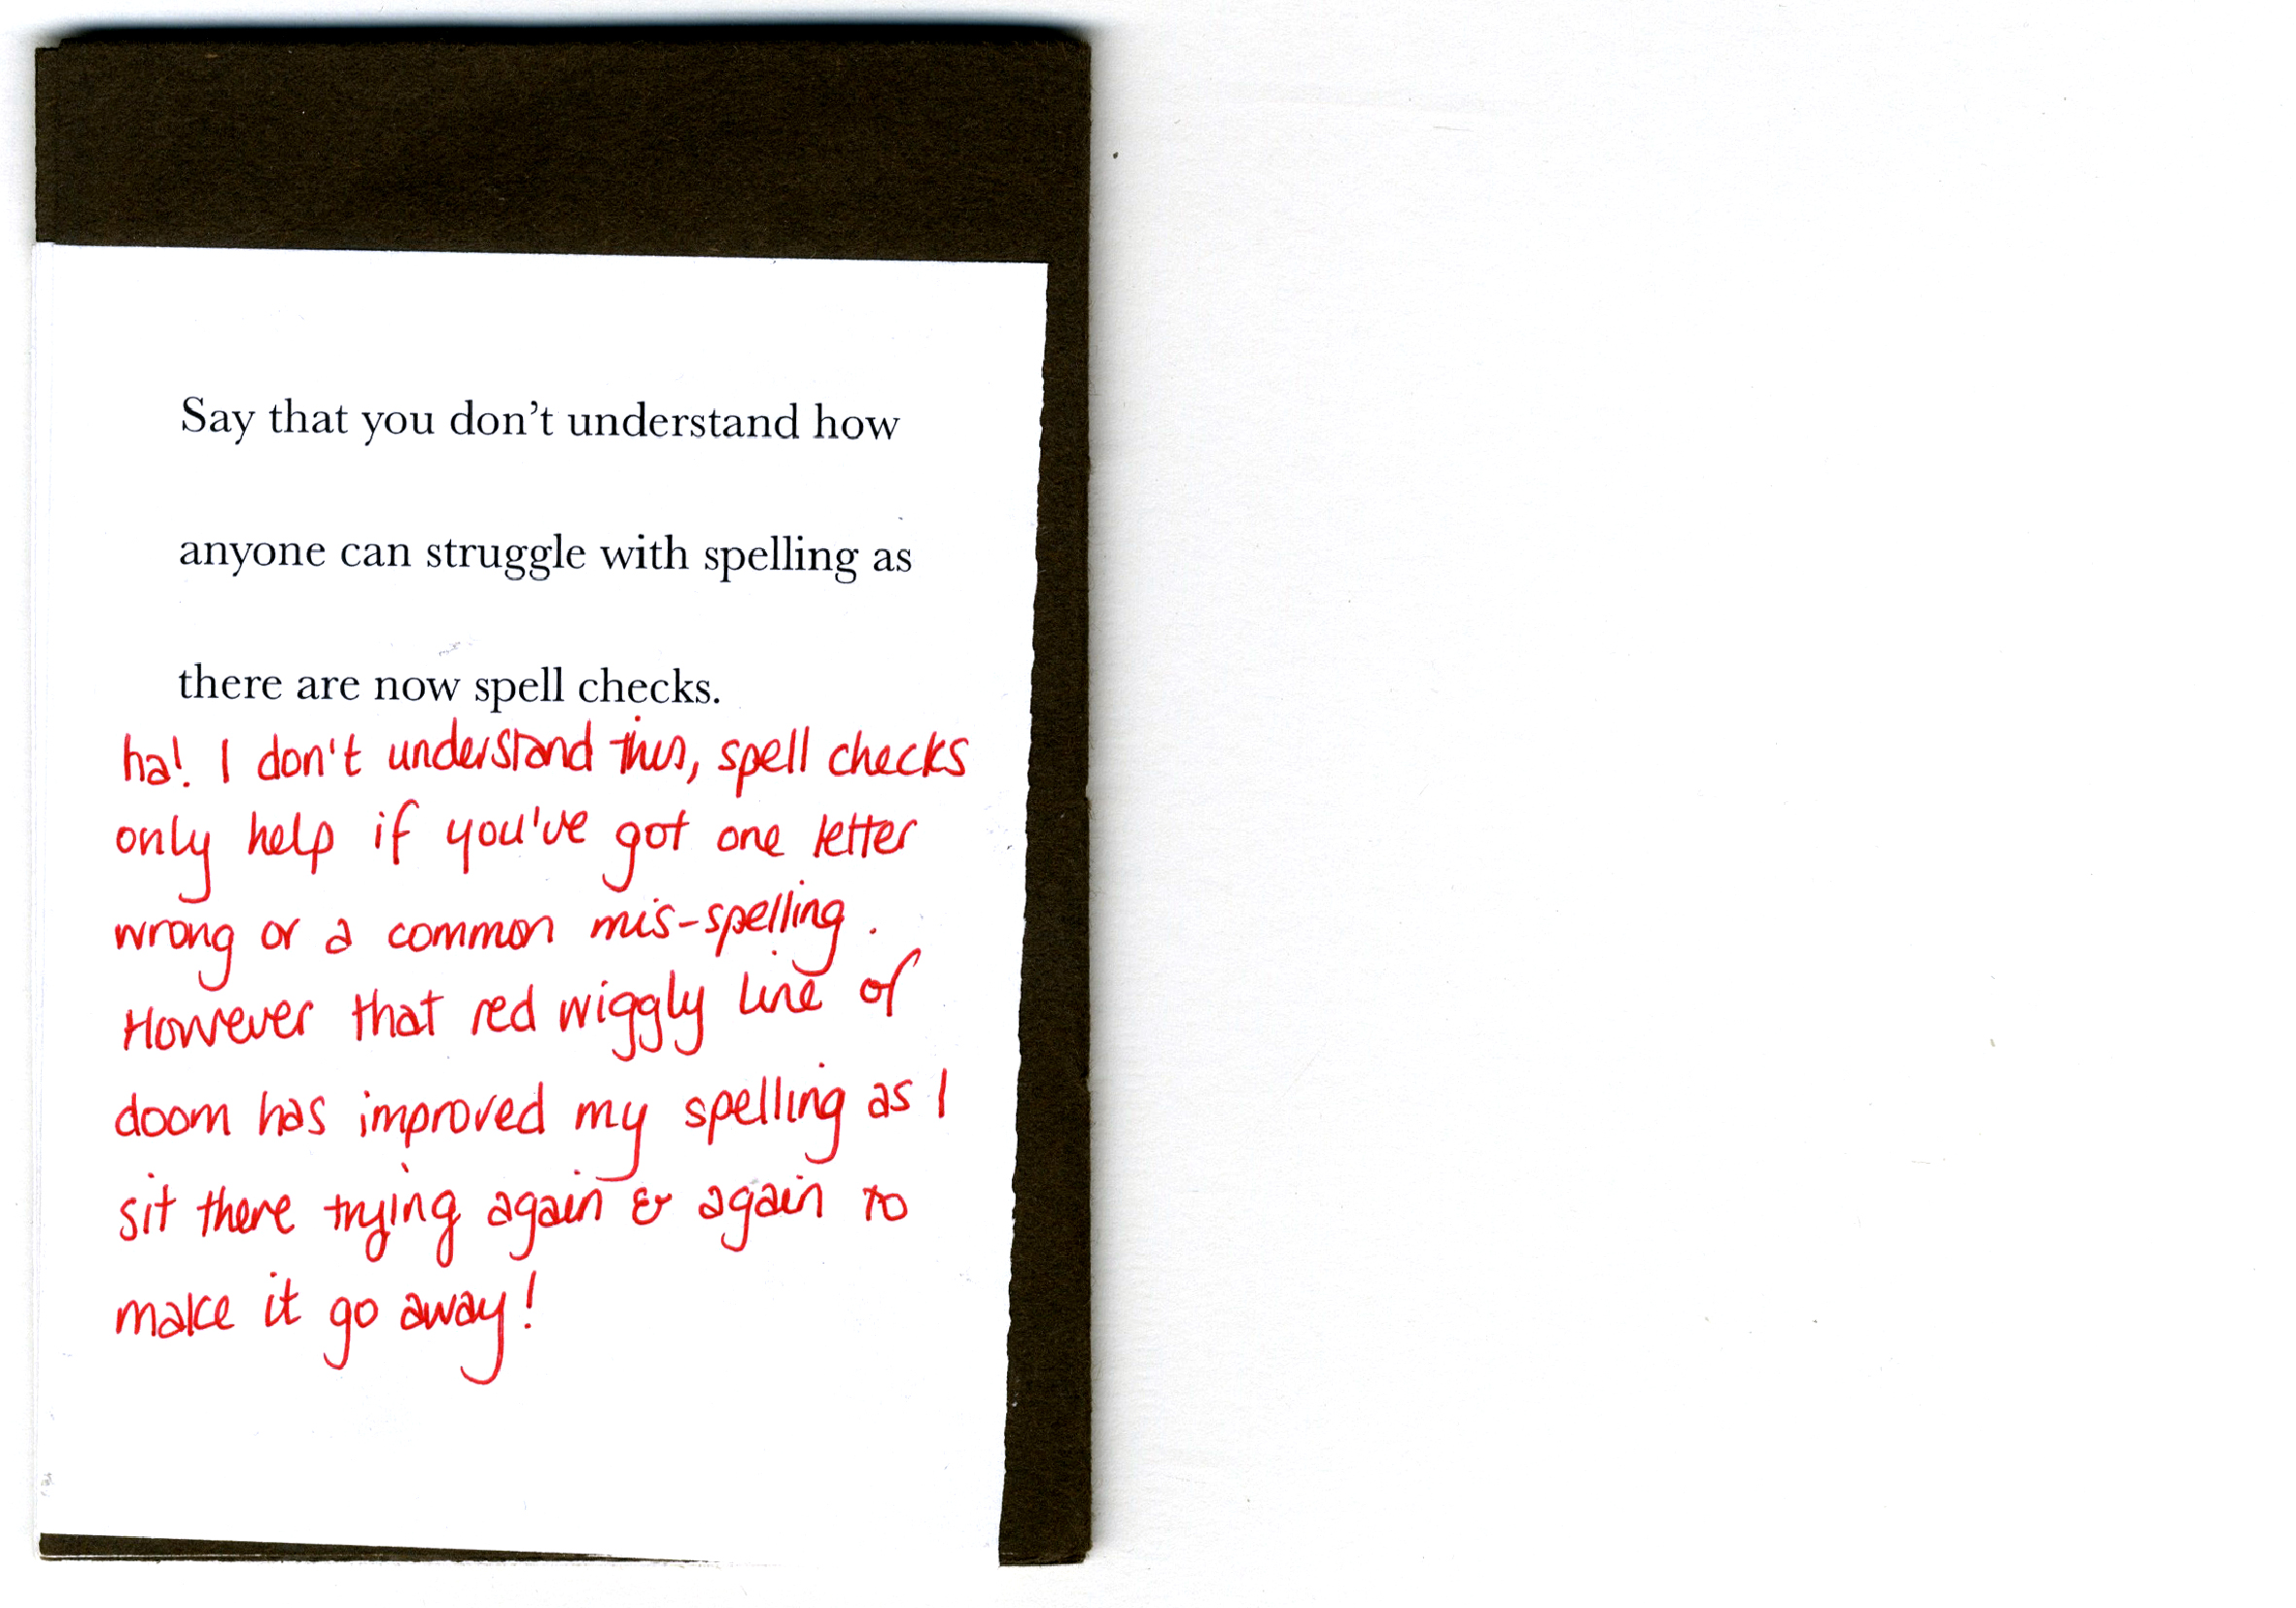 Say that you don't understand how
anyone can struggle with spelling as
there are now spell checks.
ha! I don't understand this, spell checks
only help if you've got one letter
wrong or a common mis-spelling.
However that red wiggly line of
doom has improved my spelling as I
sit there trying again & again to
make it go away!